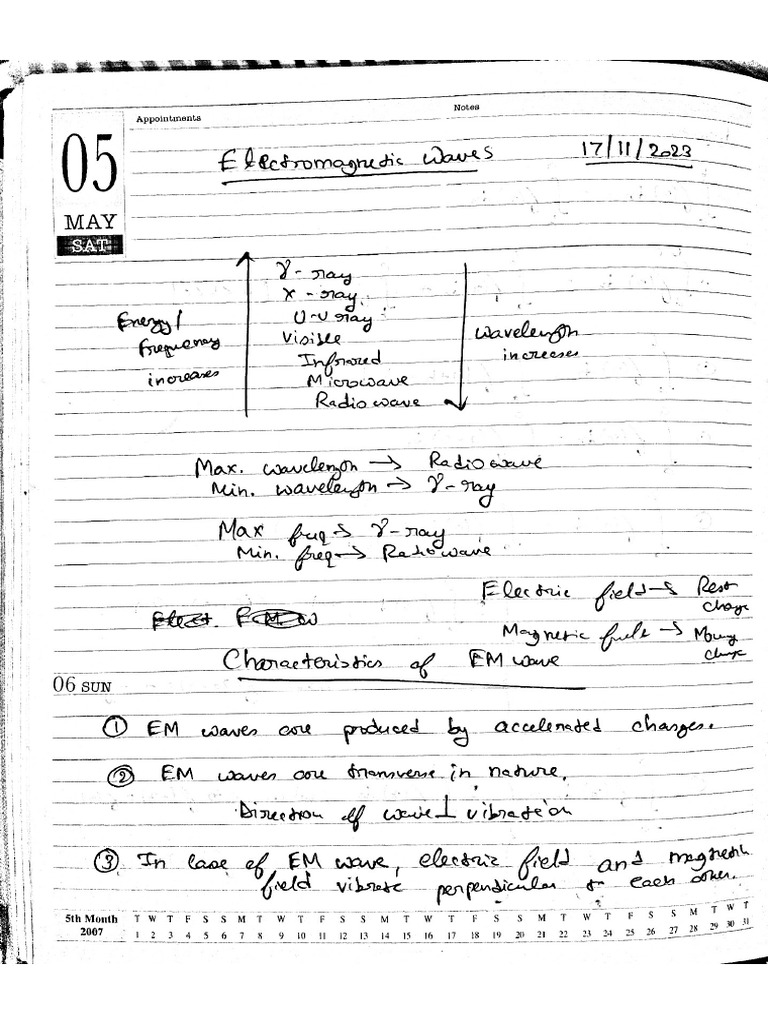 Appointments
Notes
05
MAY
SAT
Electromagnetic Waves
17/11/2023
γ-ray
x-ray
U-V ray
Visible
Infrared
Microwave
Radiowave
Energy/
frequency
increases
Wavelength
increases
Max. wavelength → Radiowave
Min. wavelength → γ-ray
Max freq → γ-ray
Min. freq → Radiowave
Electric field → Rest
charge
Magnetic field → Moving
charge
Characteristics of EM wave
06 SUN
① EM waves are produced by accelerated charges.
② EM waves are transverse in nature.
Direction of wave ⊥ vibration
③ In case of EM wave, electric field and magnetic
field vibrate perpendicular to each other.
5th Month T W T F S S M T W T F S S M T W T F S S M T W T F S S M T W T
2007 1 2 3 4 5 6 7 8 9 10 11 12 13 14 15 16 17 18 19 20 21 22 23 24 25 26 27 28 29 30 31